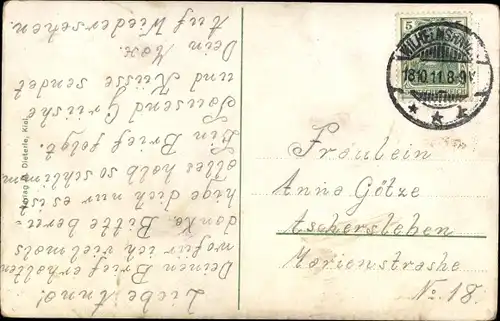 Liebe Anna!
Deinen Brief erhalten
wofür ich vielmals
danke. Bitte beru-
hige dich nur es ist
alles halb so schlimm
Ein Brief folgt.
Tausend Grüße
und Küsse sendet
Dein Max.
Auf Wiedersehen.
Verlag A. Dieterle, Kiel.
5
WILHELMSHAVEN
18.10.11.8-9V
Fräulein
Anna Götze
Aschersleben
Marienstrashe
No. 18.